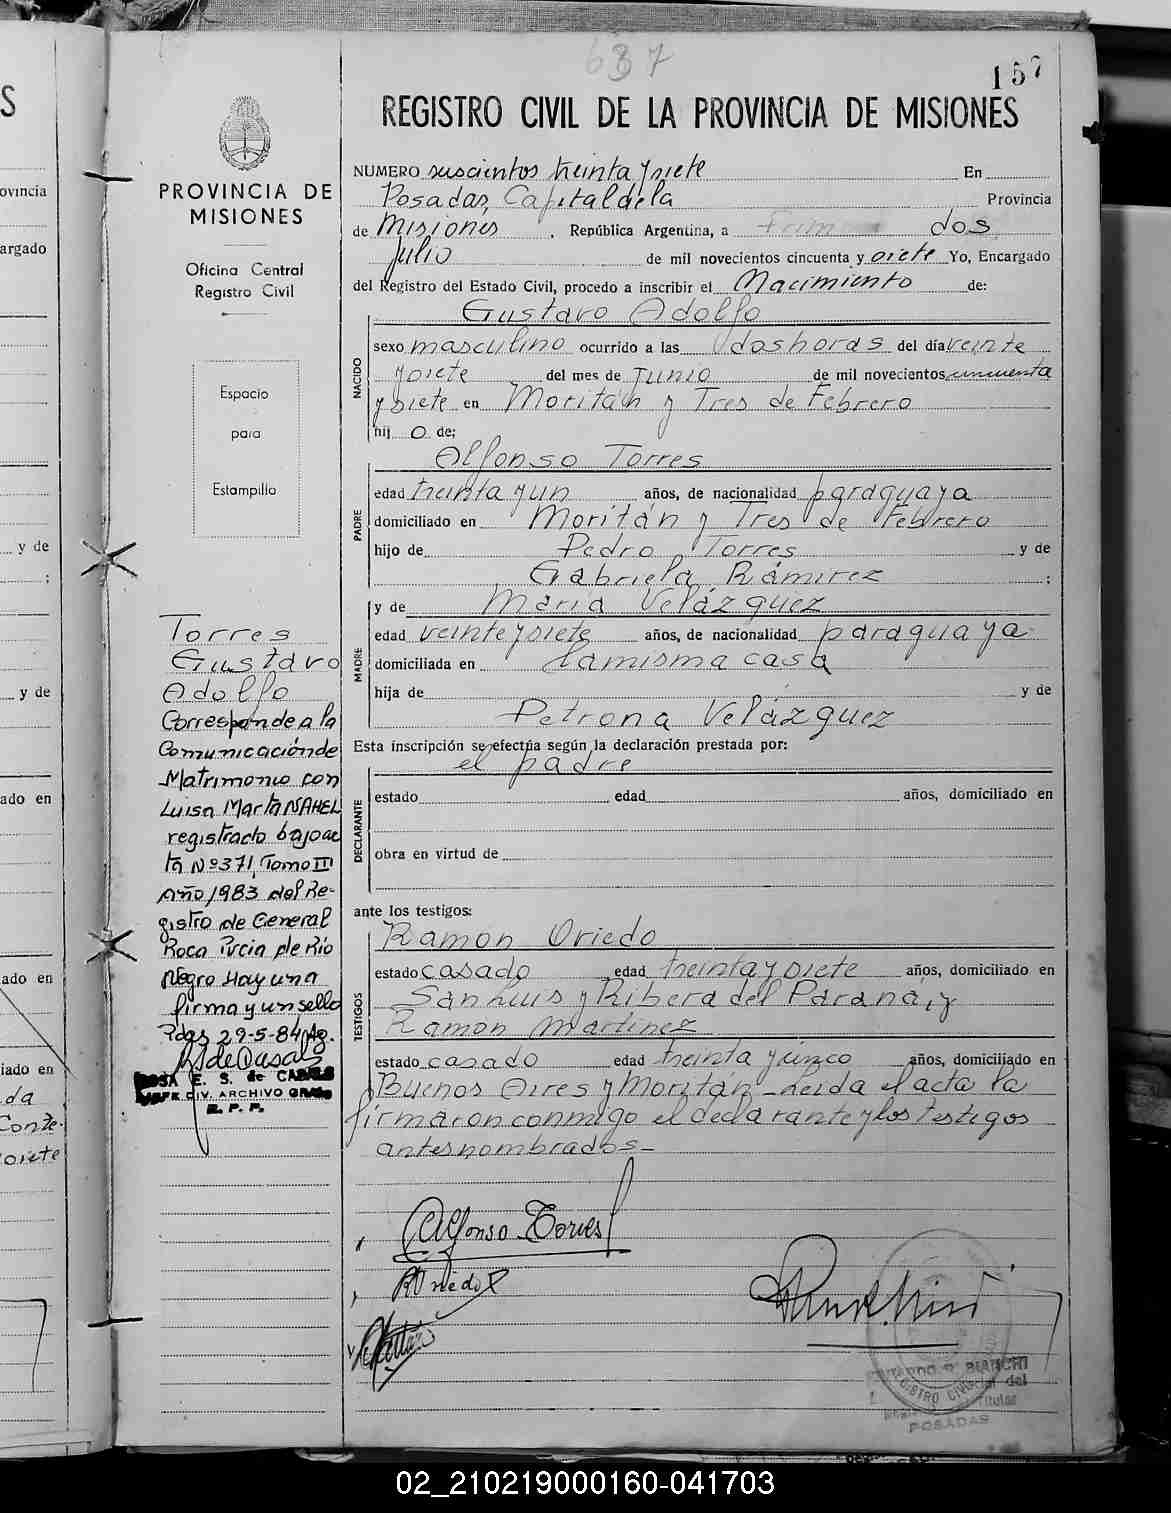 637
157
REGISTRO CIVIL DE LA PROVINCIA DE MISIONES
PROVINCIA DE
MISIONES
Oficina Central
Registro Civil
Espacio
para
Estampilla
NUMERO seiscientos treinta y siete En
Posadas, Capital de la Provincia
de Misiones, República Argentina, a dos
Julio de mil novecientos cincuenta y siete Yo, Encargado
del Registro del Estado Civil, procedo a inscribir el Nacimiento de:
Gustavo Adolfo
NACIDO
sexo masculino ocurrido a las dos horas del día veinte
y siete del mes de Junio de mil novecientos cincuenta
y siete en Moritán y Tres de Febrero
hij o de;
Alfonso Torres
PADRE
edad treinta y un años, de nacionalidad paraguaya
domiciliado en Moritán y Tres de Febrero
hijo de Pedro Torres y de
Gabriela Rámirez ;
y de María Velázquez
MADRE
edad veinte y siete años, de nacionalidad paraguaya
domiciliada en la misma casa
hija de y de
Petrona Velázquez
Esta inscripción se efectúa según la declaración prestada por:
el padre
DECLARANTE
estado edad años, domiciliado en
obra en virtud de
ante los testigos:
TESTIGOS
Ramon Oviedo
estado casado edad treinta y siete años, domiciliado en
San Luis y Ribera del Paraná, y
Ramon Martinez
estado casado edad treinta y cinco años, domiciliado en
Buenos Aires y Moritán - Leida el acta la
firmaron conmigo el declarante y los testigos
antes nombrados-
Torres
Gustavo
Adolfo
Corresponde a la
Comunicación de
Matrimonio con
Luisa Marta NAHEL
registrado bajo ac
ta Nº 371, Tomo III
Año 1983 del Re-
gistro de General
Roca Pvcia de Río
Negro Hay una
firma y un sello
Pdas 29-5-84
RS de Casals
ROSA E. S. de CASALS
CIV. ARCHIVO GRAL
R. P. P.
Alfonso Torres
R Oviedo
BIANCHI
REGISTRO CIVIL
Titular
POSADAS
S
ovincia
argado
y de
;
y de
ado en
ado en
iado en
da
Conte-
siete
02_210219000160-041703